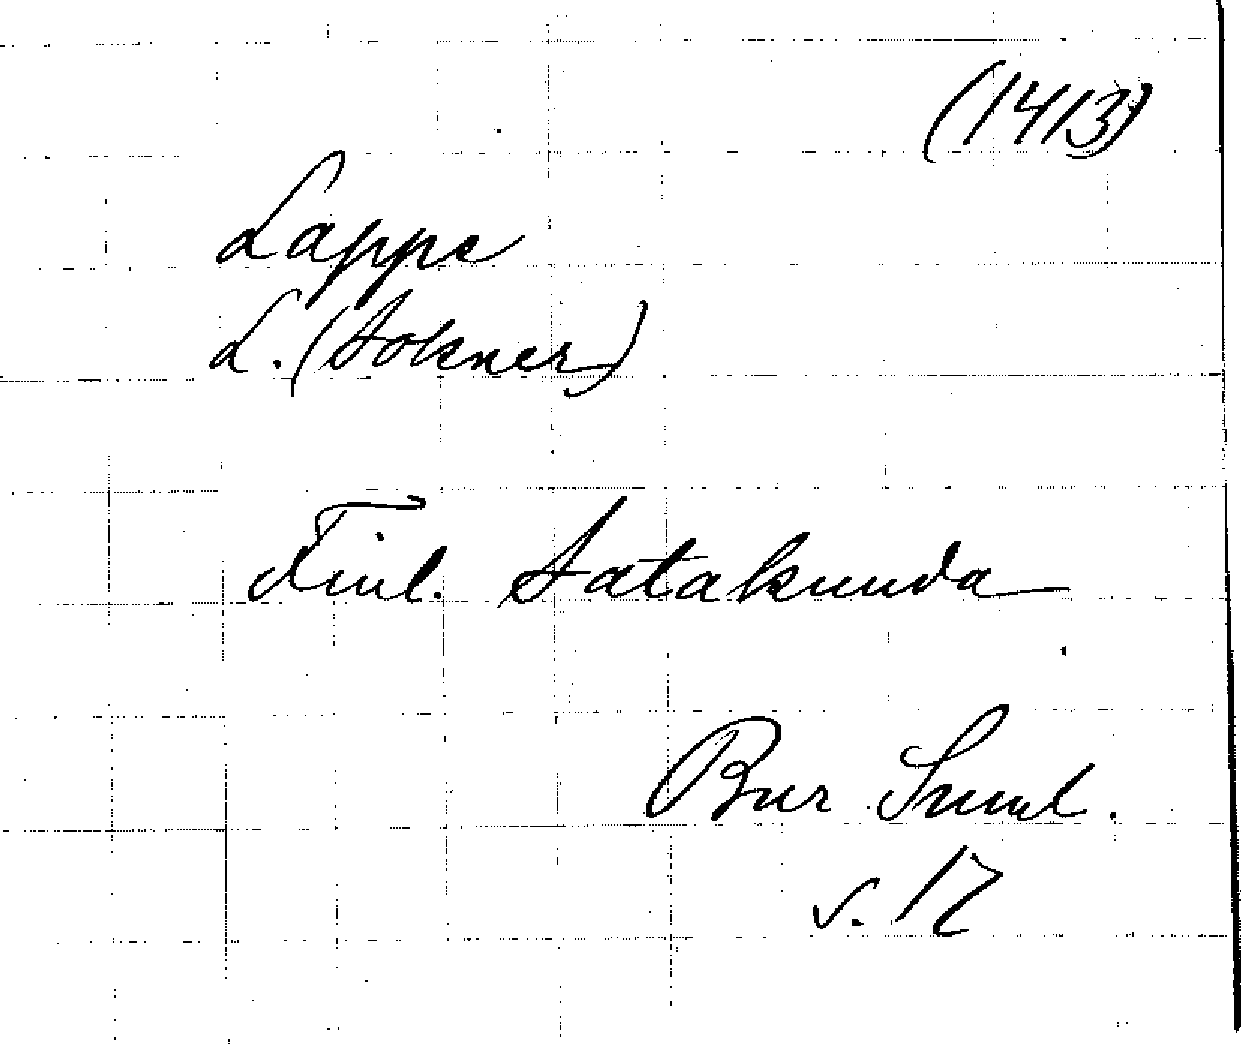 (1413)
Lappe
L. (Sokner)
Finl. Satakunda
Bur Smul.
s. 17